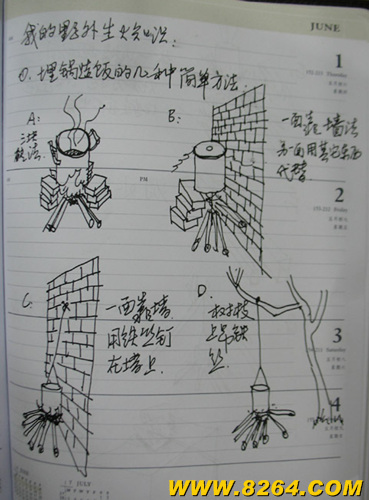 JUNE
我的野外生火日记.
①.埋锅造饭的几种简单方法.
1
Thursday
A:
B:
一面靠墙法
另一面用其它东西
代替
2
Friday
C:
一面靠墙
用铁丝钉
在墙上.
D.
树枝
上吊铁
丝.
3
Saturday
4
JULY
WWW.8264.COM